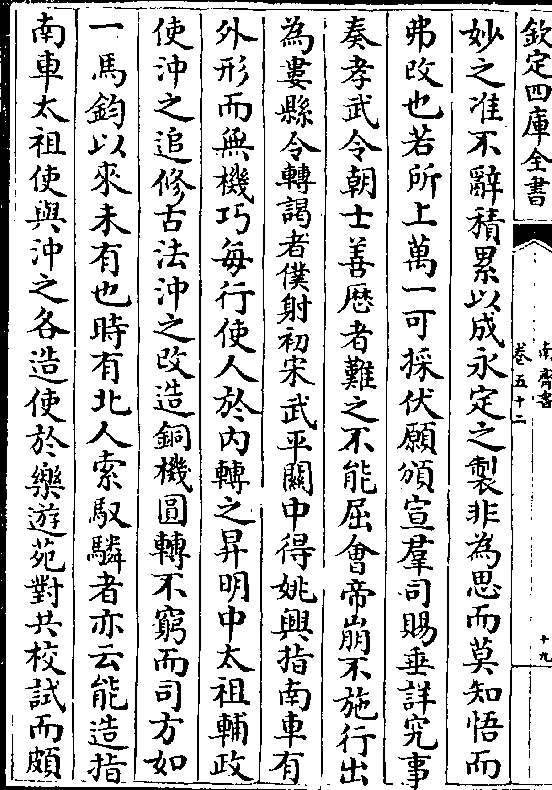 欽定四庫全書
南齊書
卷五十二
十九
妙之准不辭積累以成永定之製非為思而莫知悟而
弗改也若所上萬一可採伏願頒宣羣司賜垂詳究事
奏孝武令朝士善厯者難之不能屈會帝崩不施行出
為婁縣令轉謁者僕射初宋武平關中得姚興指南車有
外形而無機巧每行使人於內轉之昇明中太祖輔政
使沖之追修古法沖之改造銅機圓轉不窮而司方如
一馬鈞以來未有也時有北人索馭驎者亦云能造指
南車太祖使與沖之各造使於樂遊苑對共校試而頗